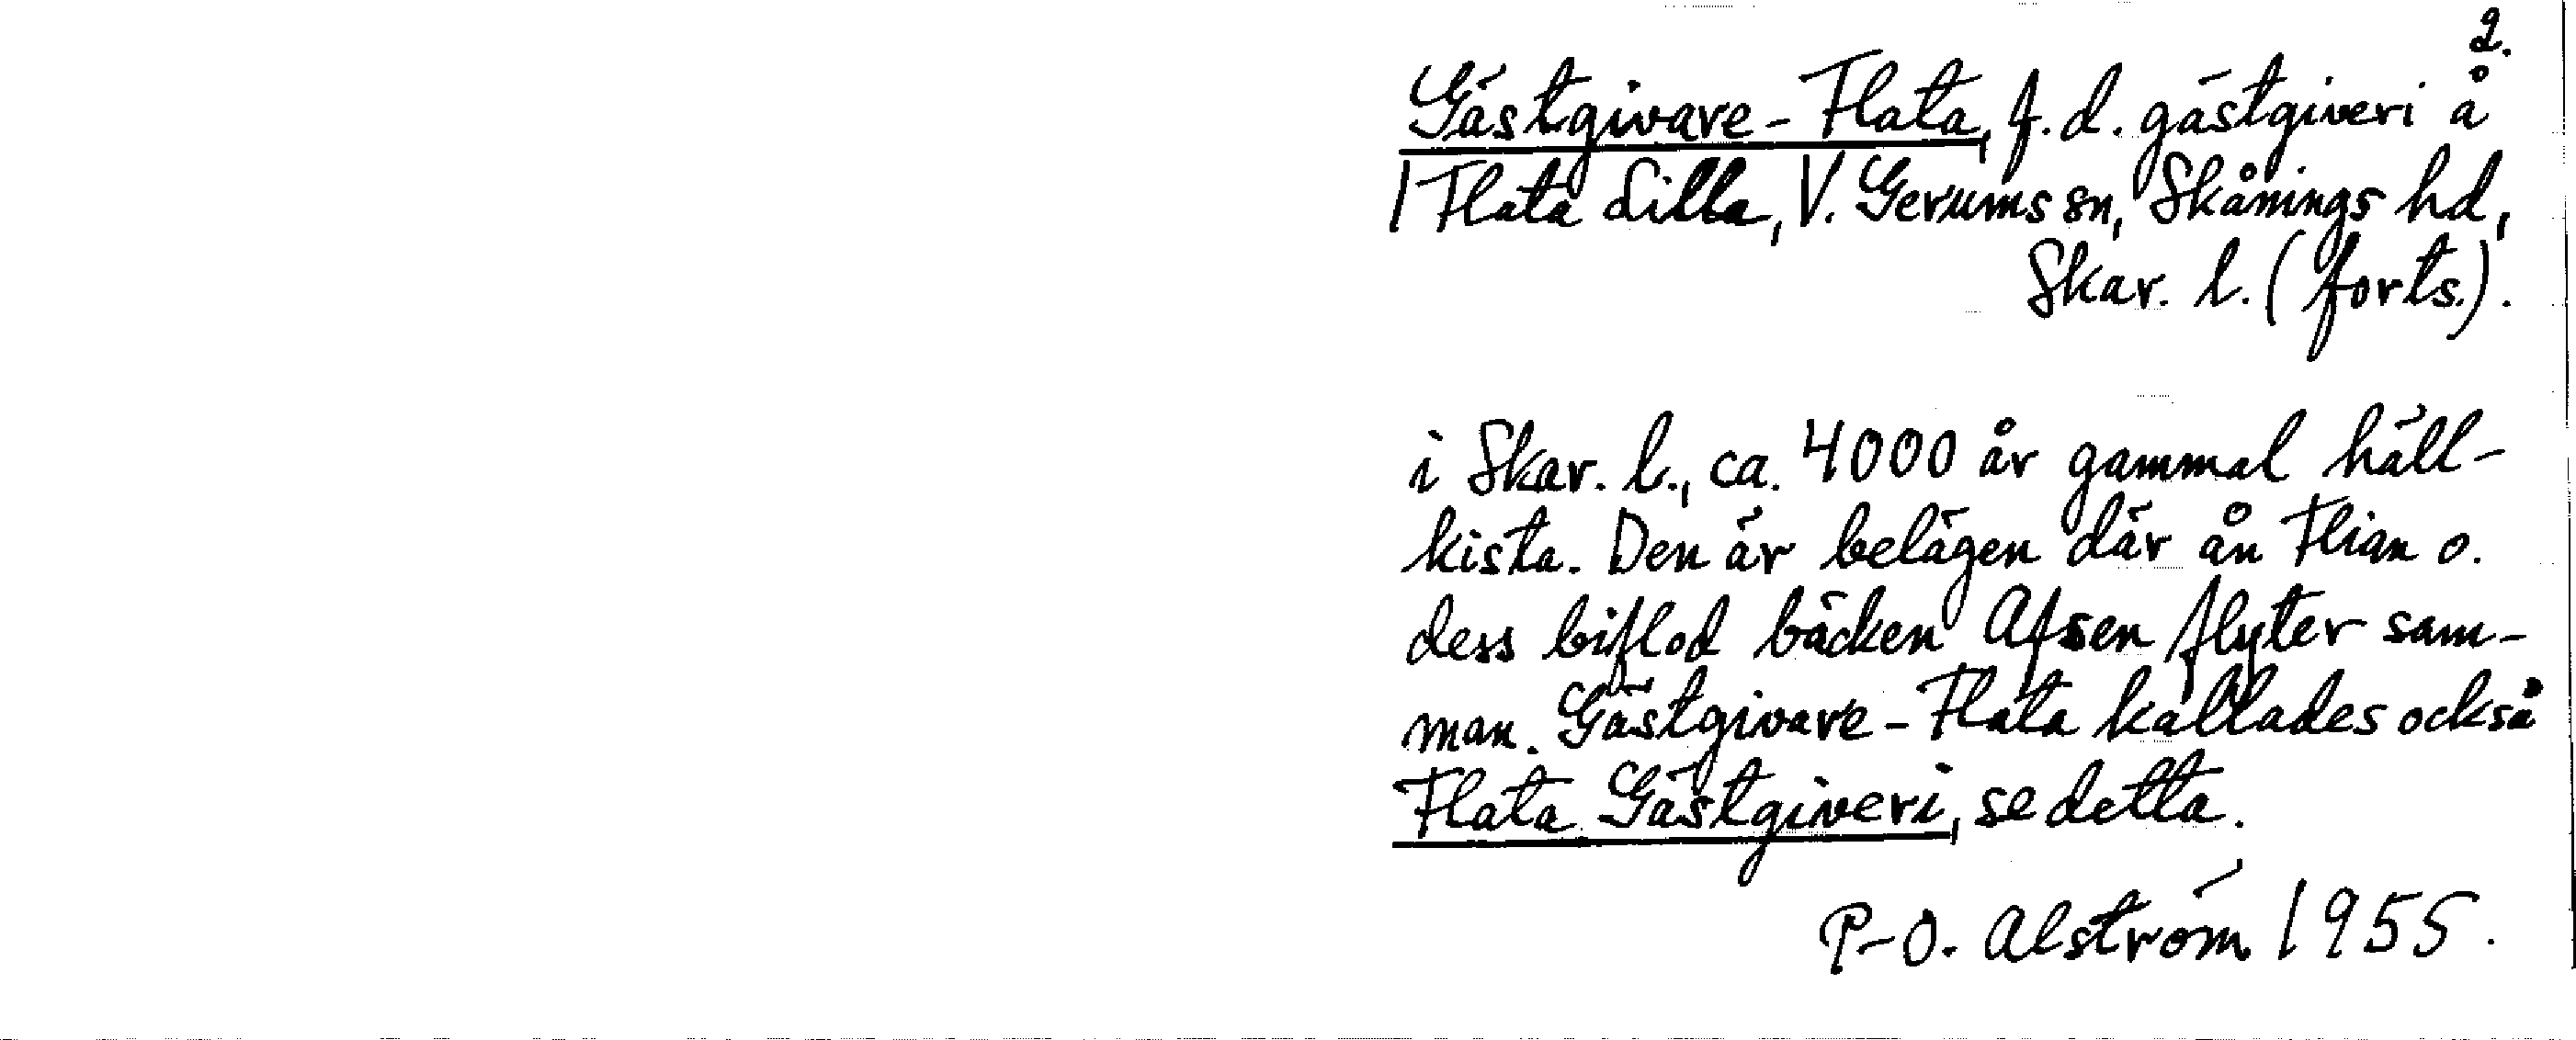 2.
Gästgivare-Flata, f.d. gästgiveri å
1 Flata Lilla, V. Gerums sn, Skånings hd,
Skar. l. (forts.).
i Skar. l., ca. 4000 år gammal häll-
kista. Den är belägen där ån Flian o.
dess biflod bäcken Afsen flyter sam-
man. Gästgivare-Flata kallades också
Flata Gästgiveri, se detta.
P-O. Alström 1955.